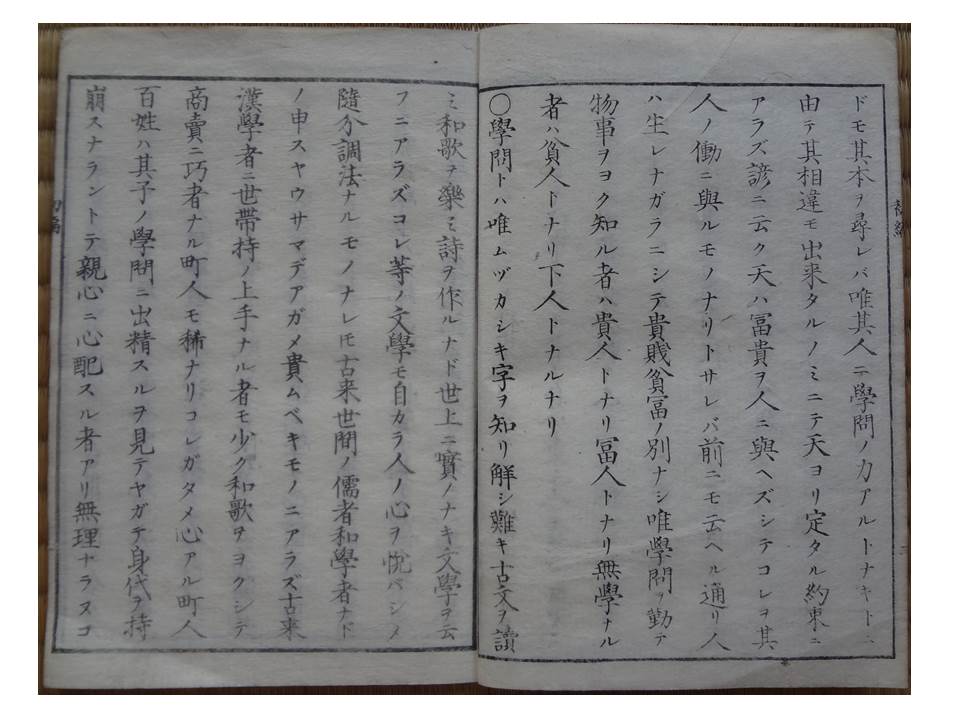 ドモ其本ヲ尋レバ唯其人ニ學問ノ力アルトナキトニ
由テ其相違モ出来タルノミニテ天ヨリ定タル約束ニ
アラズ諺ニ云ク天ハ冨貴ヲ人ニ與ヘズシテコレヲ其
人ノ働ニ與ルモノナリトサレバ前ニモ云ヘル通リ人
ハ生レナガラニシテ貴賎貧冨ノ別ナシ唯學問ヲ勤テ
物事ヲヨク知ル者ハ貴人トナリ冨人トナリ無學ナル
者ハ貧人トナリ下人トナルナリ
〇學問トハ唯ムヅカシキ字ヲ知リ解シ難キ古文ヲ讀
ミ和歌ヲ樂ミ詩ヲ作ルナド世上ニ實ノナキ文學ヲ云
フニアラズコレ等ノ文學モ自カラ人ノ心ヲ悅バシメ
隨分調法ナルモノナレ𪜈古来世間ノ儒者和學者ナド
ノ申スヤウサマデアガメ貴ムベキモノニアラズ古来
漢學者ニ世帯持ノ上手ナル者モ少ク和歌ヲヨクシテ
商賣ニ巧者ナル町人モ稀ナリコレガタメ心アル町人
百姓ハ其子ノ學問ニ出精スルヲ見テヤガテ身代ヲ持
崩スナラントテ親心ニ心配スル者アリ無理ナラヌコ